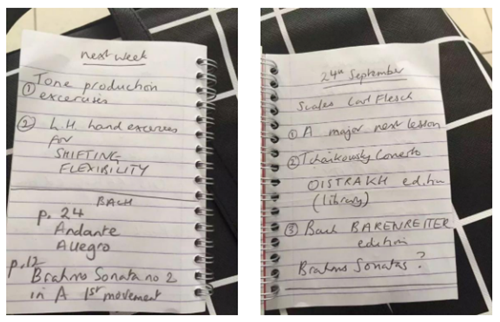 next week
① Tone production
excercises
② L.H. hand excercises
for
SHIFTING
FLEXIBILITY
BACH
p. 24
Andante
Allegro
p.12
Brahms Sonata no 2
in A 1st movement
24th September
Scales Carl Flesch
① A major next lesson
② Tchaikovsky Concerto
OISTRAKH edition
(library)
③ Bach BARENREITER
edition
Brahms Sonatas ?